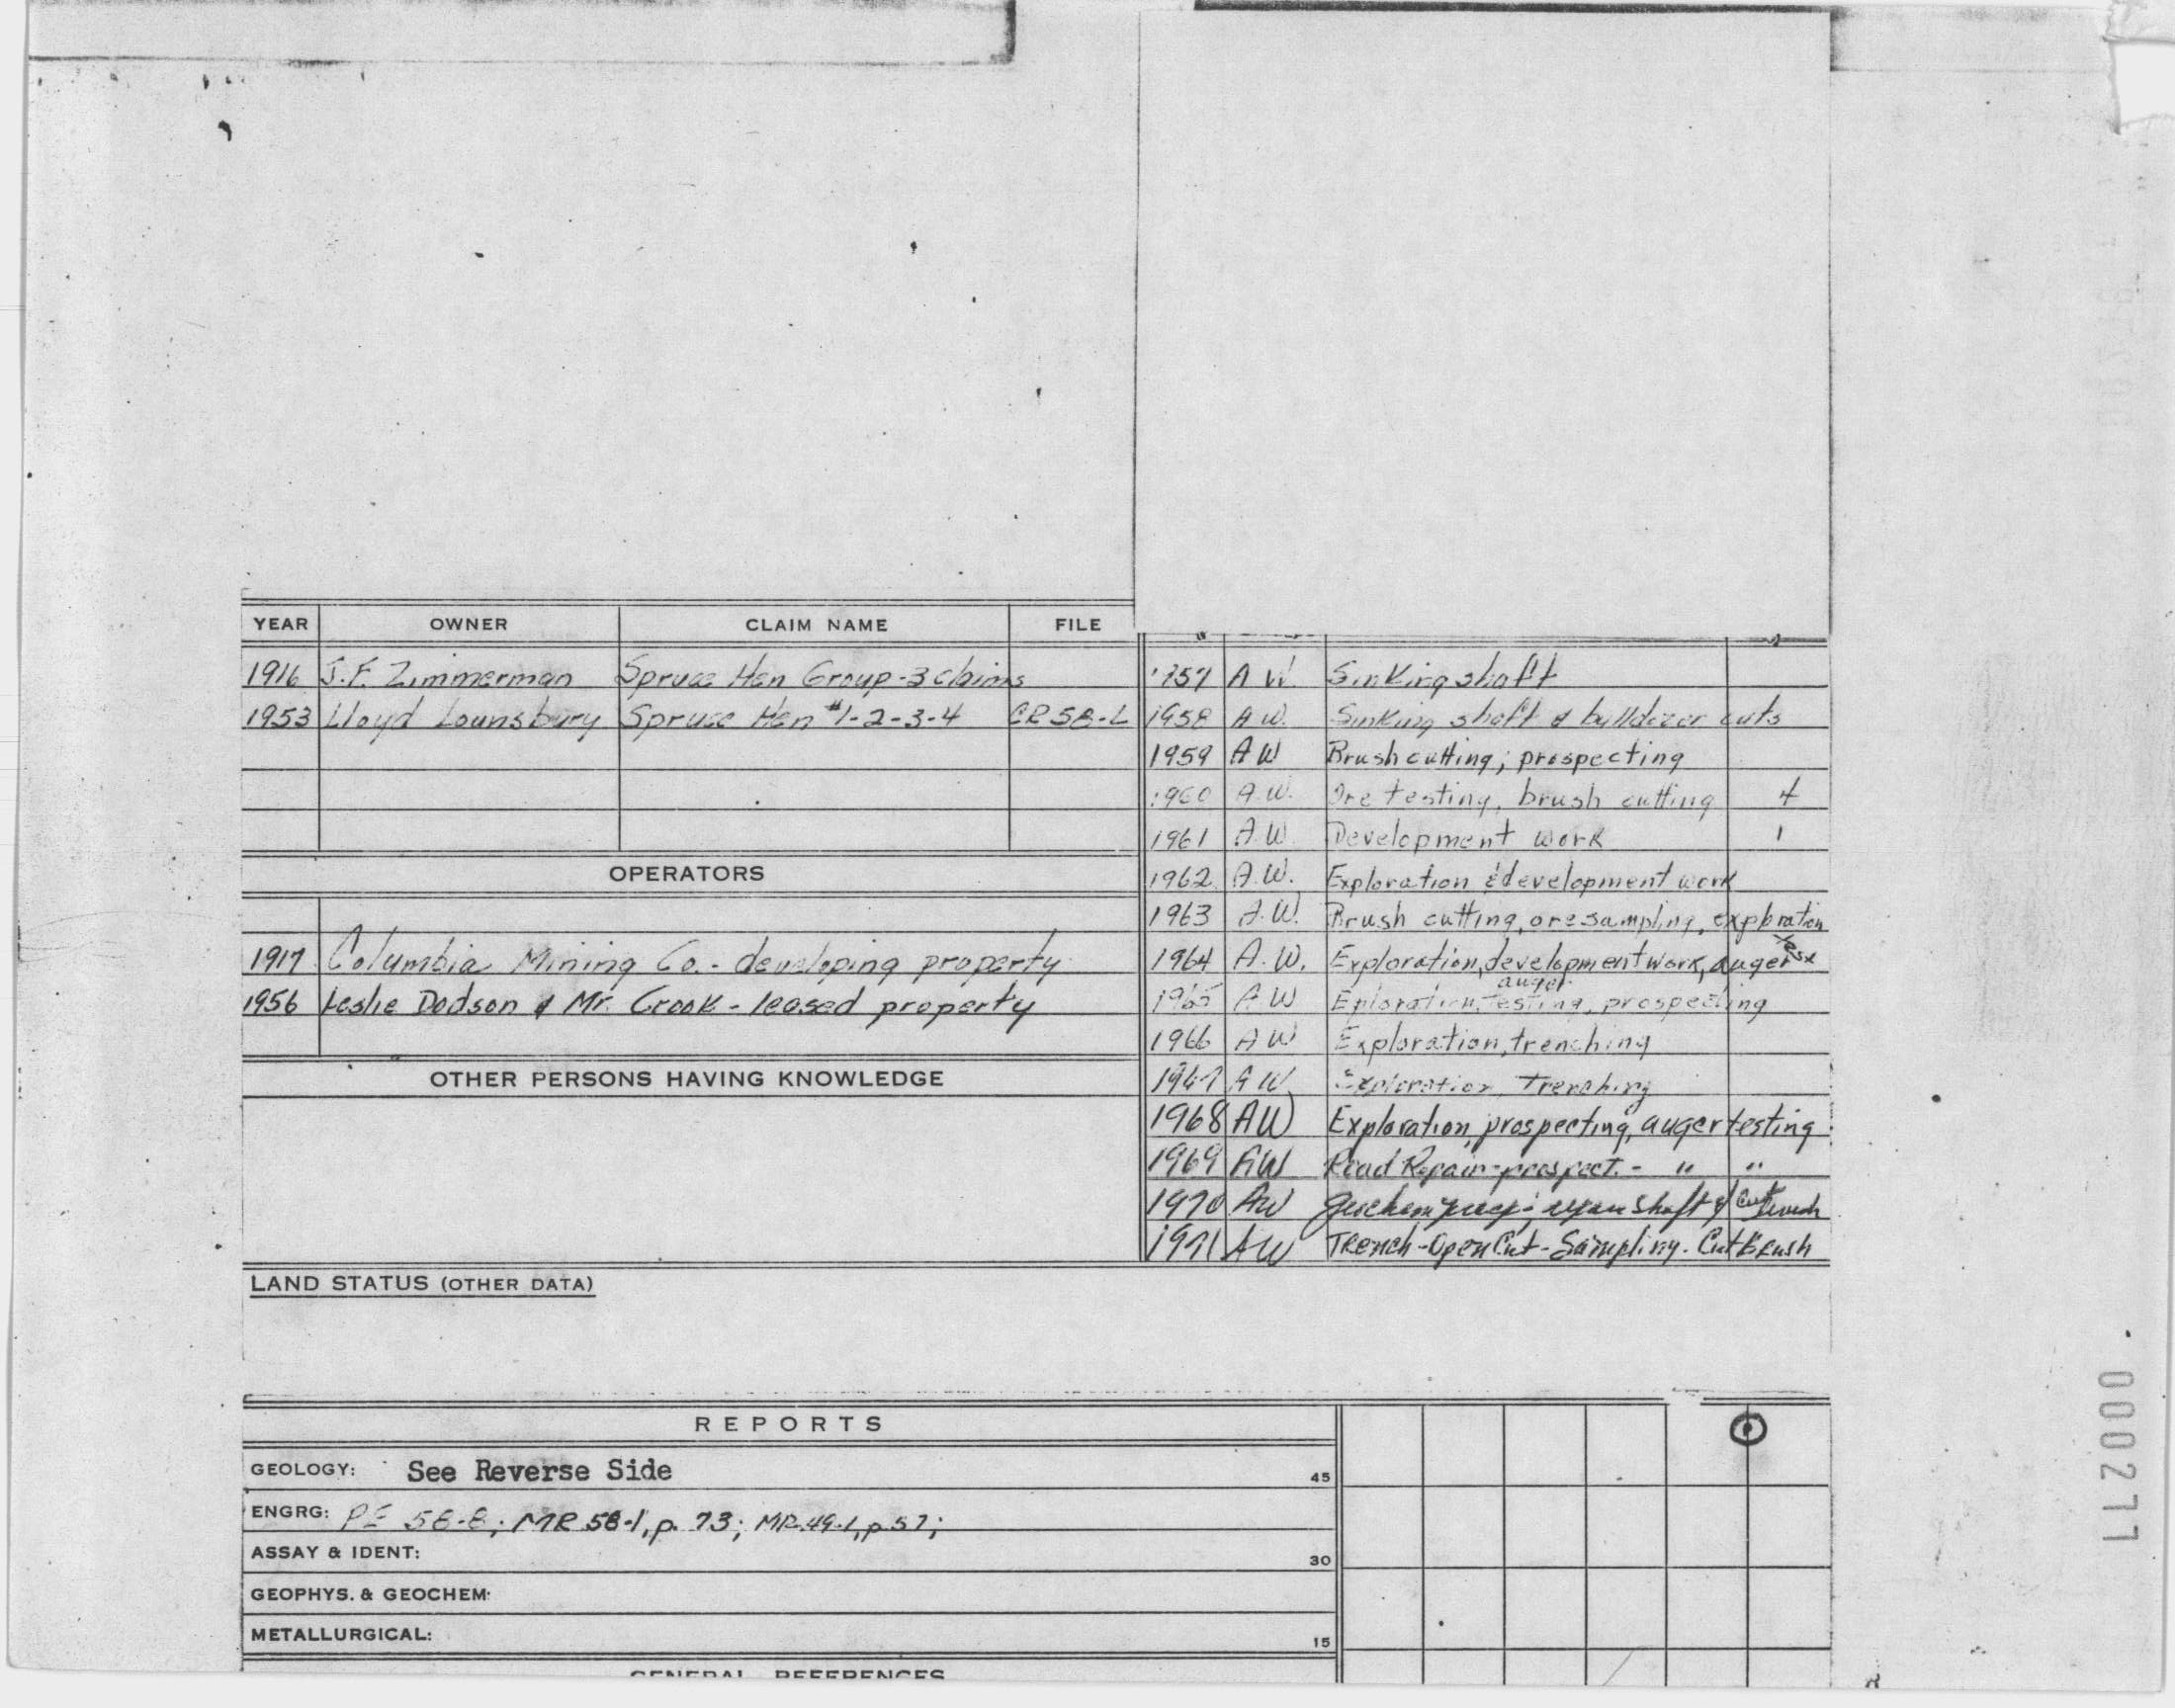 YEAR OWNER CLAIM NAME FILE
1916 J.F. Zimmerman Spruce Hen Group-3 claims
1953 Lloyd Lounsbury Spruce Hen #1-2-3-4 CR 58-L
OPERATORS
1917 Columbia Mining Co. - developing property
1956 Leslie Dodson & Mr. Crook - leased property
OTHER PERSONS HAVING KNOWLEDGE
1957 A W. Sinking shaft
1958 A W. Sinking shaft & bulldozer cuts
1959 A W Brush cutting; prospecting
1960 A.W. Ore testing, brush cutting 4
1961 A.W. Development work 1
1962 A.W. Exploration & development work
1963 A.W. Brush cutting, ore sampling, exploration
1964 A.W. Exploration, development work, auger
1965 A W Eploration, auger testing, prospecting
1966 A W Exploration, trenching
1967 A W Exploration, Trenching
1968 AW Exploration, prospecting, auger testing
1969 AW Road Repair - prospect. - " "
1970 AW shaft & cut
1971 AW Trench - Open Cut - Sampling. Cut Brush
LAND STATUS (OTHER DATA)
REPORTS
GEOLOGY: See Reverse Side 45
ENGRG: PE 58-8; MR 58-1, p. 73; MR.49-1, p 57;
ASSAY & IDENT: 30
GEOPHYS. & GEOCHEM:
METALLURGICAL: 15
GENERAL REFERENCES
000277